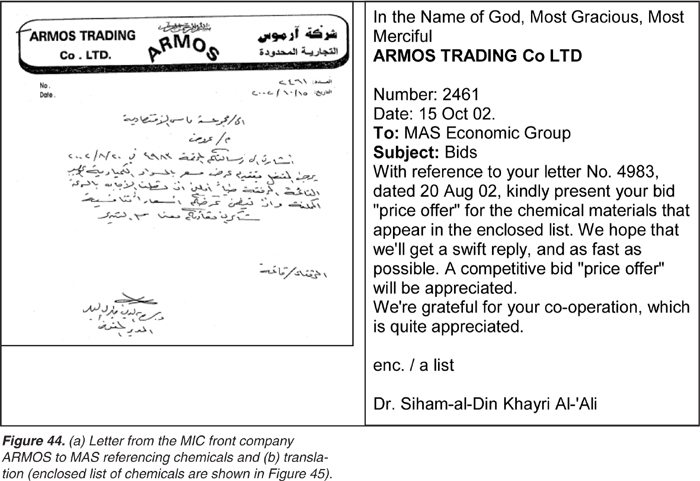 ARMOS TRADING
Co . LTD.
ARMOS
شركة آرموس
التجارية المحدودة
No.
Date.
العدد: ٢٤٦١
التاريخ: ٢٠٠٢/١٠/١٥
الى/ مجموعة ماس الاقتصادية
م/ عروض
اشارة الى رسالتكم المرقمة ٤٩٨٣ في ٢٠٠٢/٨/٢٠
يرجى التفضل بتقديم عرض سعر المواد الكيمياوية
شاكرين تعاونكم معنا
المرفقات/ قائمة
In the Name of God, Most Gracious, Most
Merciful
ARMOS TRADING Co LTD
Number: 2461
Date: 15 Oct 02.
To: MAS Economic Group
Subject: Bids
With reference to your letter No. 4983,
dated 20 Aug 02, kindly present your bid
"price offer" for the chemical materials that
appear in the enclosed list. We hope that
we'll get a swift reply, and as fast as
possible. A competitive bid "price offer"
will be appreciated.
We're grateful for your co-operation, which
is quite appreciated.
enc. / a list
Dr. Siham-al-Din Khayri Al-'Ali
Figure 44. (a) Letter from the MIC front company
ARMOS to MAS referencing chemicals and (b) transla-
tion (enclosed list of chemicals are shown in Figure 45).